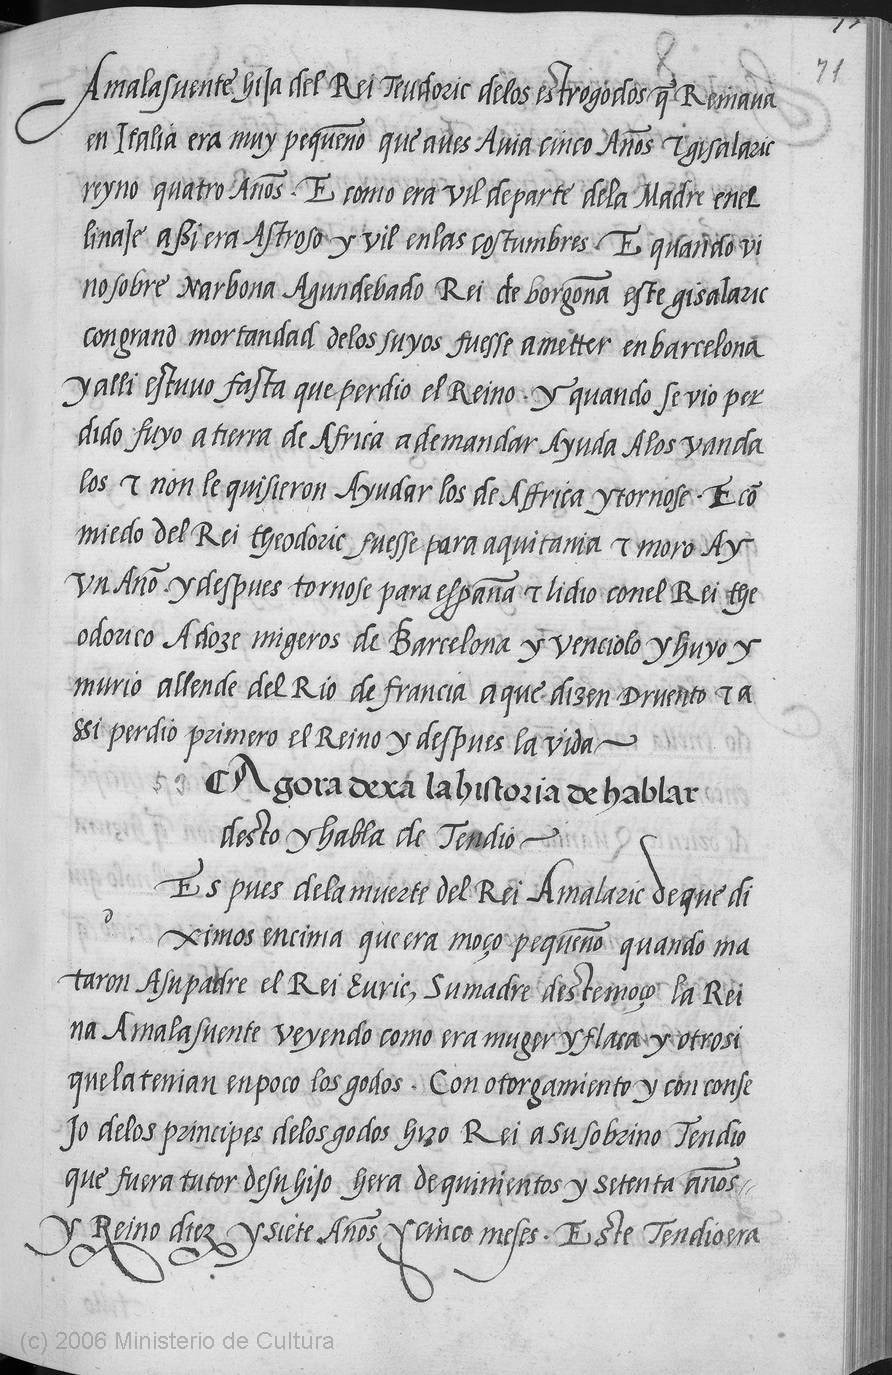 71
Amalasuente hija del Rei Teudoric delos estrogodos q̃ Reinava
en Italia era muy pequeño que aves Avia cinco Años τ gisalaric
reyno quatro Años. E como era vil departe dela Madre enel
linaje aßi era Astroso y vil enlas costumbres. E quando vi
no sobre Narbona Agundebado Rei de borgoña este gisalaric
congrand mortandad delos suyos fuesse ametter en barcelona
y alli estuvo fasta que perdio el Reino. y quando se vio per
dido fuyo a tierra de Africa a demandar Ayuda Alos vanda
los τ non le quisieron Ayudar los de Affrica y tornose. E cõ
miedo del Rei theodoric fuesse para aquitania τ moro Ay
vn Año. y despues tornose para españa τ lidio conel Rei the
odorico A doze migeros de Barcelona y venciolo y huyo y
murio allende del Rio de francia aque dizen Druento τ a
ssi perdio primero el Reino y despues la vida
53 Agora dexa la historia de hablar
desto y habla de Tendio
Es pues dela muerte del Rei Amalaric de que di
d ximos encima que era moço pequeño quando ma
taron Asu padre el Rei Euric, Su madre destemoço la Rei
na Amalasuente veyendo como era muger y flaca y otrosi
que la tenian en poco los godos. Con otorgamiento y con conse
Jo delos principes delos godos hizo Rei a su sobrino Tendio
que fuera tutor de su hijo hera de quinientos y setenta años
y Reino diez y siete Años y cinco meses. Este Tendio era
(c) 2006 Ministerio de Cultura